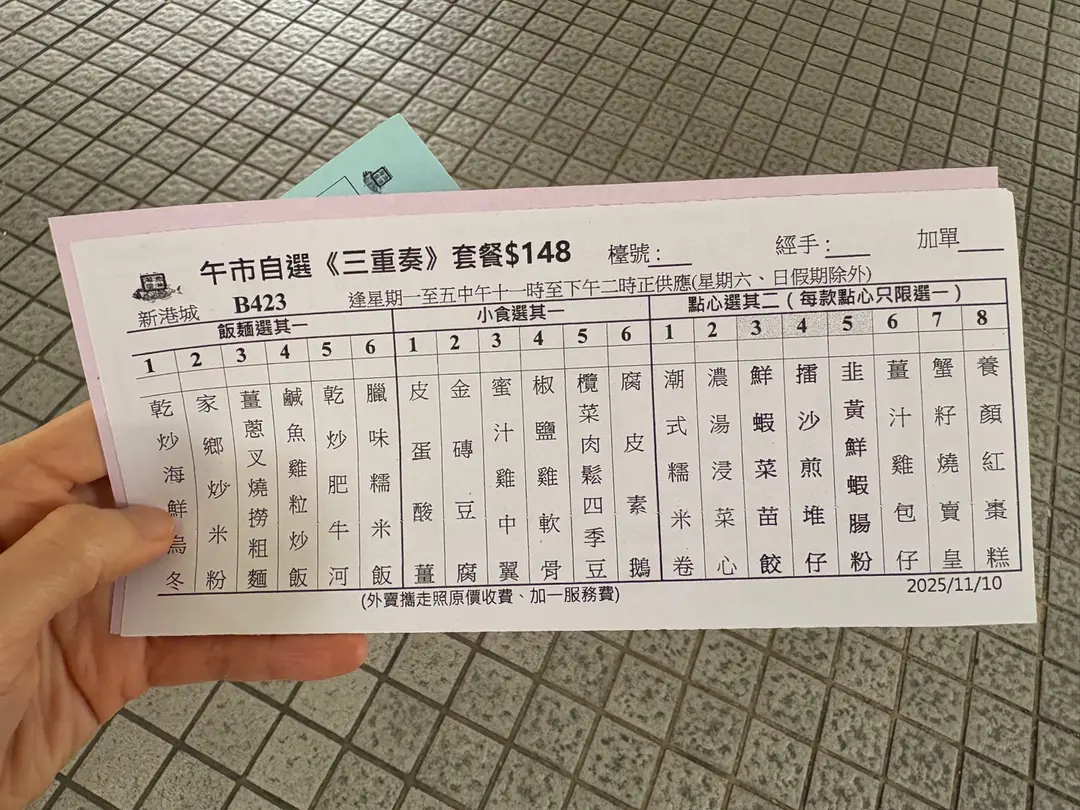 午市自選《三重奏》套餐$148
檯號:
經手:
加單
新港城
B423
逢星期一至五中午十一時至下午二時正供應(星期六、日假期除外)
飯麵選其一
小食選其一
點心選其二(每款點心只限選一)
1 2 3 4 5 6
1 2 3 4 5 6
1 2 3 4 5 6 7 8
乾炒海鮮烏冬
家鄉炒米粉
薑蔥叉燒撈粗麵
鹹魚雞粒炒飯
乾炒肥牛河
臘味糯米飯
皮蛋酸薑
金磚豆腐
蜜汁雞中翼
椒鹽雞軟骨
欖菜肉鬆四季豆
腐皮素鵝
潮式糯米卷
濃湯浸菜心
鮮蝦菜苗餃
擂沙煎堆仔
韭黃鮮蝦腸粉
薑汁雞包仔
蟹籽燒賣皇
養顏紅棗糕
(外賣攜走照原價收費、加一服務費)
2025/11/10